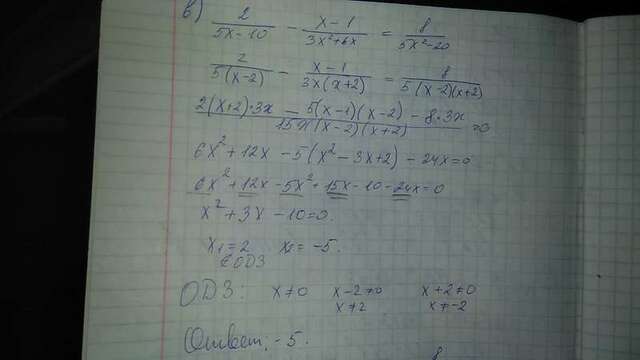 в) 2/(5x-10) - (x-1)/(3x²+6x) = 8/(5x²-20)
2/(5(x-2)) - (x-1)/(3x(x+2)) = 8/(5(x-2)(x+2))
(2(x+2)·3x - 5(x-1)(x-2) - 8·3x)/(15x(x-2)(x+2)) = 0
6x²+12x-5(x²-3x+2)-24x=0
6x²+12x-5x²+15x-10-24x=0
x²+3x-10=0.
x₁=2 x₂=-5.
∉ОДЗ
ОДЗ: x≠0 x-2≠0 x+2≠0
x≠2 x≠-2
Ответ: -5.